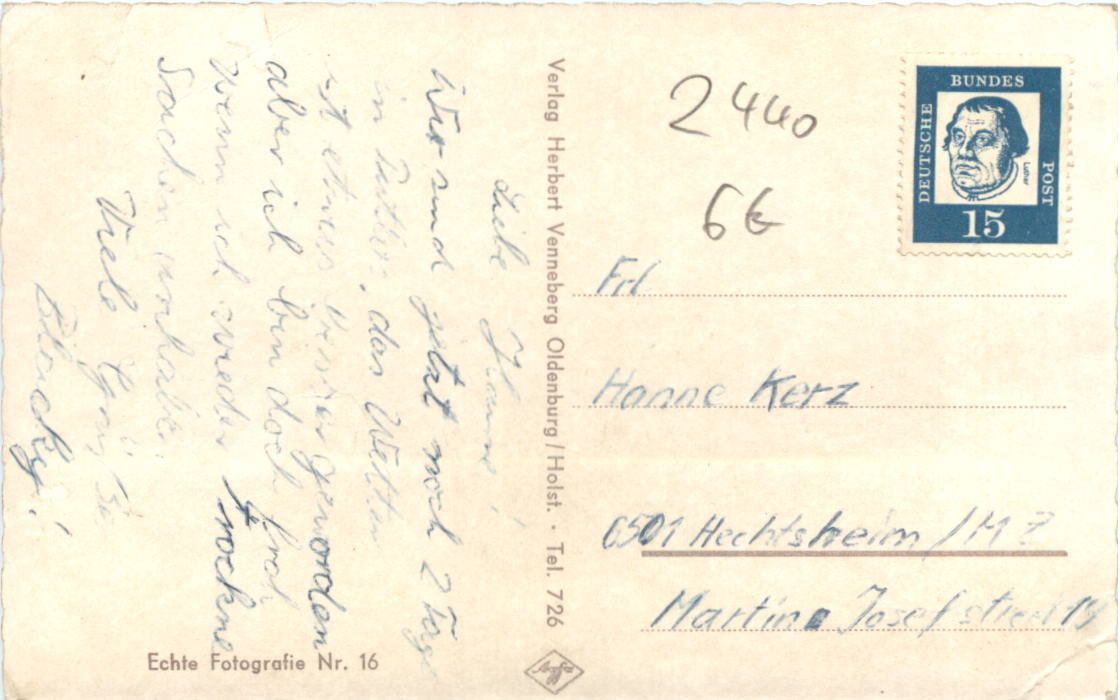 Liebe Hanne!
Wir sind jetzt noch 2 Tage
in das Wetter
ist etwas besser geworden
aber ich bin doch froh
wenn ich wieder trockne
Sachen anhabe.
Viele Grüße
Verlag Herbert Venneberg Oldenburg/Holst. · Tel. 726
Echte Fotografie Nr. 16
Agfa
2440
6€
DEUTSCHE
BUNDES
POST
Luther
15
Frl
Hanne Kerz
6501 Hechtsheim / MZ
Martin Josef